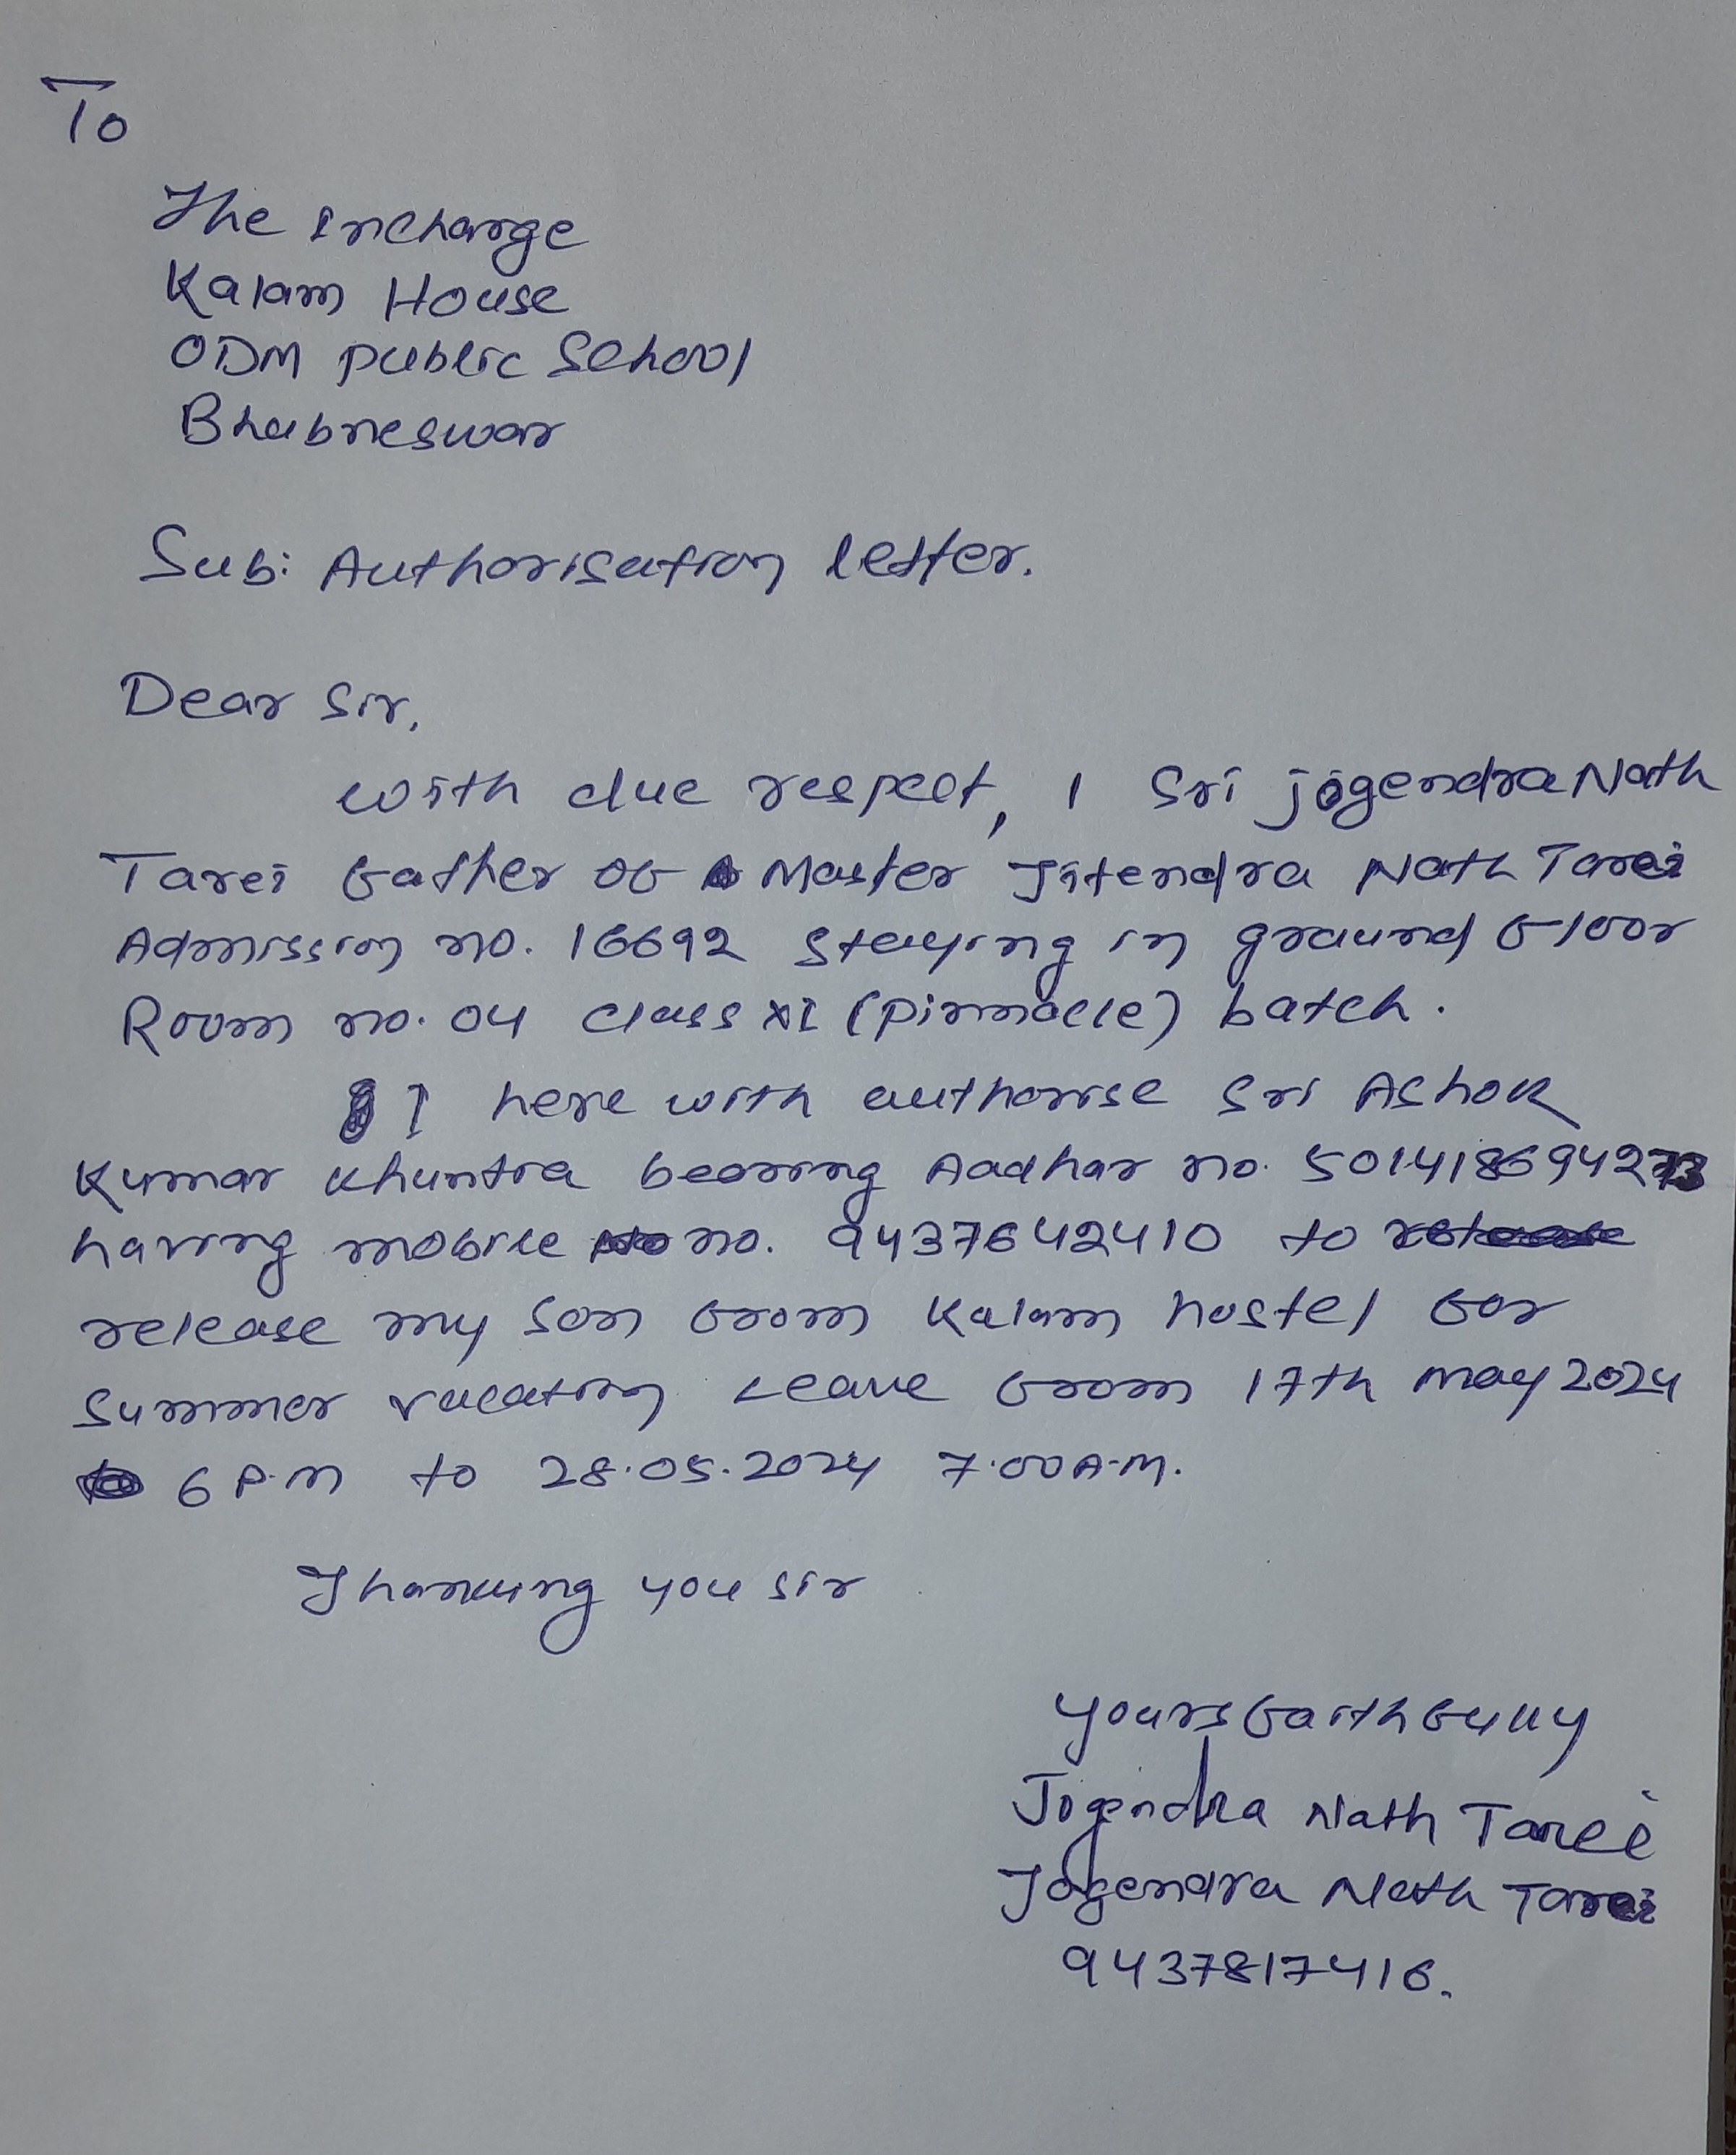 To
The Incharge
Kalam House
ODM Public School
Bhubneswar
Sub: Authorisation letter.
Dear Sir,
with due respect, I Sri jogendra Nath
Tarei father of Master Jitendra Nath Tarei
Admission no. 16692 staying in ground floor
Room no. 04 class XI (pinnacle) batch.
I here with authorise Sri Ashok
Kumar Khuntia bearing Aadhar no.
having mobile no. 9437642410 to
release my son from Kalam hostel for
Summer vacation Leave from 17th may 2024
6 P.m to 28.05.2024 7.00 A.M.
Thanking you sir
yours faithfully
Jogendra Nath Tarei
Jogendra Nath Tarei
9437817416.